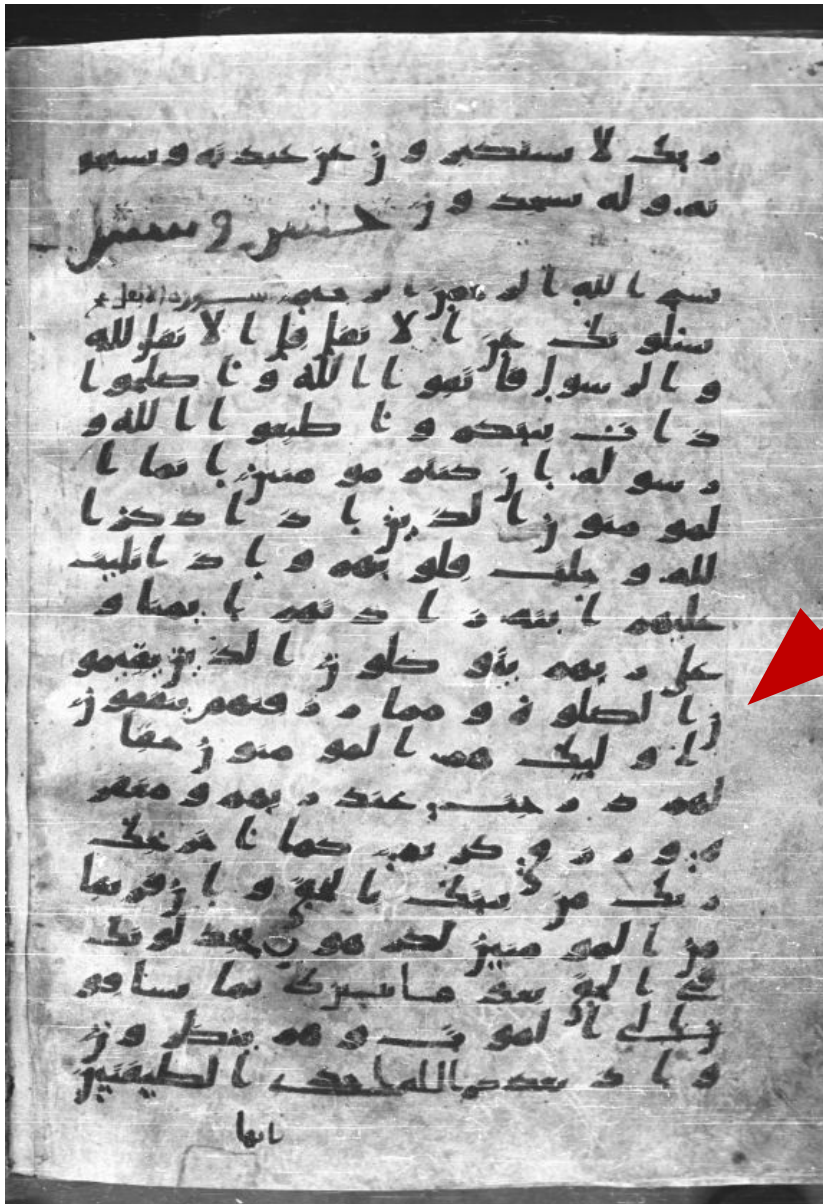 ربك لا يستكبرون عن عبدته ويسبحو
نه وله يسجدون
بسم الله الرحمن الرحيم سورة الانفال
يسلونك عن الانفل قل الانفل لله
والرسول فاتقوا الله واصلحوا
ذات بينكم واطيعوا الله و
رسوله ان كنتم مومنين انما ا
لمومنون الذين اذا ذكر ا
لله وجلت قلوبهم واذا تليت
عليهم ايته زادتهم ايمنا و
على ربهم يتوكلون الذين يقيمو
ن الصلوة ومما رزقنهم ينفقون
اوليك هم المومنون حقا
لهم درجت عند ربهم ومغفر
ة ورزق كريم كما اخرجك
ربك من بيتك بالحق وان فريقا
من المومنين لكرهون يجدلونك
في الحق بعد ما تبين كانما يساقو
ن الى الموت وهم ينظرون
واذ يعدكم الله احدى الطيفتين
انها